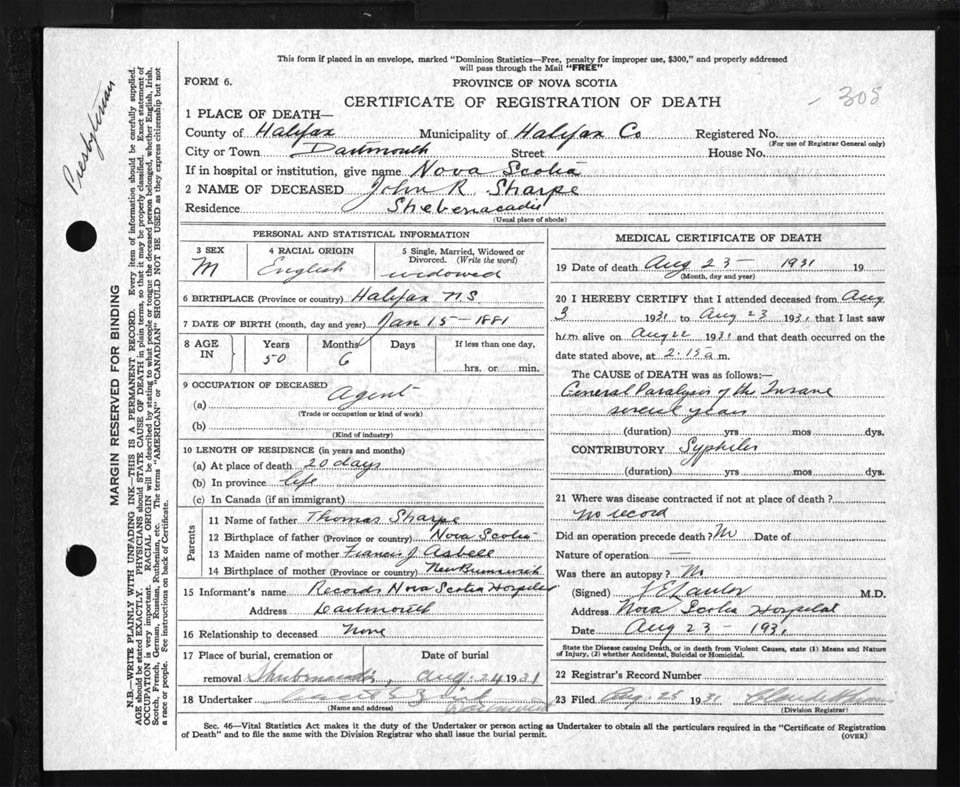 This form if placed in an envelope, marked "Dominion Statistics—Free, penalty for improper use, $300," and properly addressed
will pass through the Mail "FREE"
FORM 6.
PROVINCE OF NOVA SCOTIA
CERTIFICATE OF REGISTRATION OF DEATH
305
Presbyterian
MARGIN RESERVED FOR BINDING
N.B.—WRITE PLAINLY WITH UNFADING INK—THIS IS A PERMANENT RECORD. Every item of information should be carefully supplied.
AGE should be stated EXACTLY. PHYSICIANS should STATE CAUSE OF DEATH in plain terms, so that it may be properly classified. Exact statement of
OCCUPATION is very important. RACIAL ORIGIN will be described by stating to what people or tongue the deceased person belonged, whether English, Irish,
Scotch, French, German, Russian, Ruthenian, etc. The terms "AMERICAN" or "CANADIAN" SHOULD NOT BE USED as they express citizenship but not
a race or people. See instructions on back of Certificate.
1 PLACE OF DEATH—
County of Halifax Municipality of Halifax Co Registered No.
(For use of Registrar General only)
City or Town Dartmouth Street House No.
If in hospital or institution, give name Nova Scotia
2 NAME OF DECEASED John R Sharpe
Residence Shebenacadie
(Usual place of abode)
PERSONAL AND STATISTICAL INFORMATION
3 SEX 4 RACIAL ORIGIN 5 Single, Married, Widowed or
Divorced. (Write the word)
M English widowed
6 BIRTHPLACE (Province or country) Halifax N.S.
7 DATE OF BIRTH (month, day and year) Jan 15 — 1881
8 AGE IN Years Months Days If less than one day,
50 6 hrs. or min.
9 OCCUPATION OF DECEASED
(a) Agent
(Trade or occupation or kind of work)
(b)
(Kind of industry)
10 LENGTH OF RESIDENCE (in years and months)
(a) At place of death 20 days
(b) In province life
(c) In Canada (if an immigrant)
Parents
11 Name of father Thomas Sharpe
12 Birthplace of father (Province or country) Nova Scotia
13 Maiden name of mother Francis J
14 Birthplace of mother (Province or country) New Brunswick
15 Informant's name Records Nova Scotia Hospital
Address Dartmouth
16 Relationship to deceased None
17 Place of burial, cremation or Date of burial
removal Shubenacadie, Aug. 24 1931
18 Undertaker
(Name and address)
MEDICAL CERTIFICATE OF DEATH
19 Date of death Aug 23 — 1931 19
(Month, day and year)
20 I HEREBY CERTIFY that I attended deceased from Aug
3 1931 to Aug 23 1931 that I last saw
him alive on Aug 22 1931 and that death occurred on the
date stated above, at 2.15 a m.
The CAUSE OF DEATH was as follows:—
General Paralysis of the Insane
several years
(duration) yrs mos dys.
CONTRIBUTORY Syphilis
(duration) yrs mos dys.
21 Where was disease contracted if not at place of death?
no record
Did an operation precede death? No Date of
Nature of operation —
Was there an autopsy? No
(Signed) Lawlor M.D.
Address Nova Scotia Hospital
Date Aug 23 — 1931
State the Disease causing Death, or in death from Violent Causes, state (1) Means and Nature
of Injury, (2) whether Accidental, Suicidal or Homicidal.
22 Registrar's Record Number
23 Filed Aug. 25 1931
(Division Registrar)
Sec. 46—Vital Statistics Act makes it the duty of the Undertaker or person acting as Undertaker to obtain all the particulars required in the "Certificate of Registration
of Death" and to file the same with the Division Registrar who shall issue the burial permit.
(OVER)